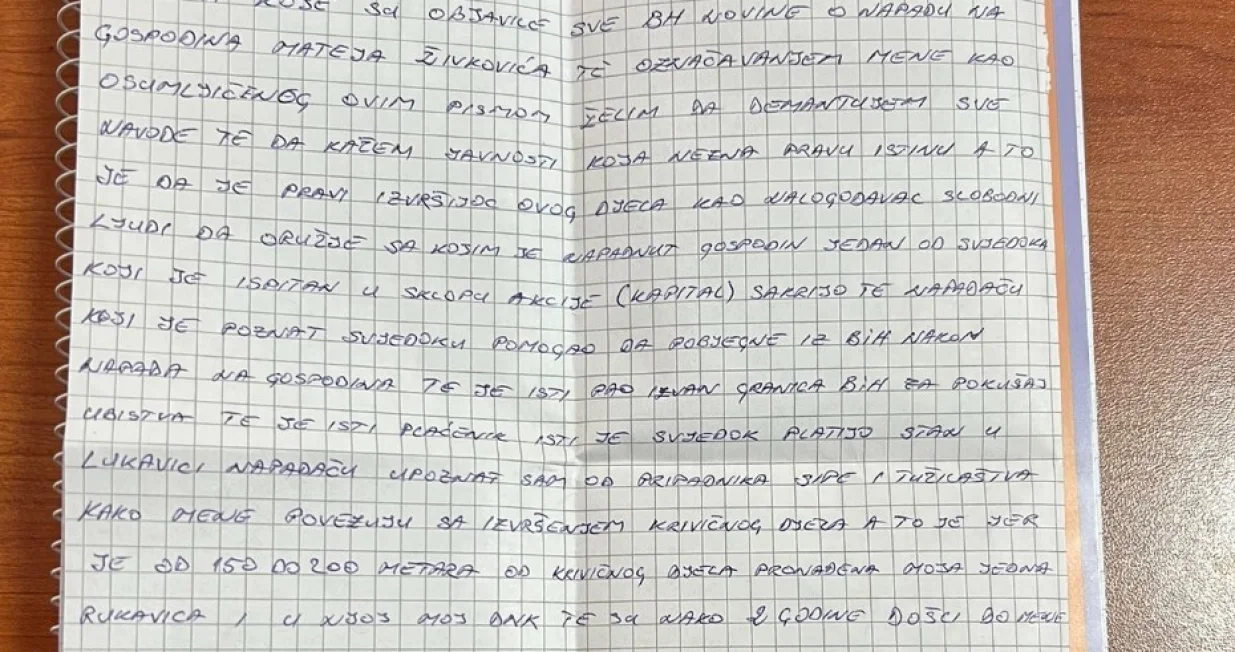 KOJE SU OBJAVILE SVE BH NOVINE O NAPADU NA
GOSPODINA MATEJA ŽIVKOVIĆA TE OZNAČAVANJEM MENE KAO
OSUMLJIČENOG OVIM PISMOM ŽELIM DA DEMANTUJEM SVE
NAVODE TE DA KAŽEM JAVNOSTI KOJA NEZNA PRAVU ISTINU A TO
JE DA JE PRAVI IZVRŠIJOC OVOG DJELA KAO NALOGODAVAC SLOBODNI
LJUDI DA ORUŽJE SA KOJIM JE NAPADNUT GOSPODIN JEDAN OD SVJEDOKA
KOJI JE ISPITAN U SKLOPU AKCIJE (KAPITAL) SAKRIJO TE NAPADAČU
KOJI JE POZNAT SVJEDOKU POMOGAO DA POBJEGNE IZ BIH NAKON
NAPADA NA GOSPODINA TE JE ISTI PAO IZVAN GRANICA BIH ZA POKUŠAJ
UBISTVA TE JE ISTI PLAĆENIK ISTI JE SVJEDOK PLATIJO STAN U
LUKAVICI NAPADAČU UPOZNAT SAM OD PRIPADNIKA SIPE I TUŽILAŠTVA
KAKO MENE POVEZUJU SA IZVRŠENJEM KRIVIČNOG DJELA A TO JE JER
JE OD 150 DO 200 METARA OD KRIVIČNOG DJELA PRONAĐENA MOJA JEDNA
RUKAVICA, U NJOJ MOJ DNK TE SU NAKO 2 GODINE DOŠLI DO MENE